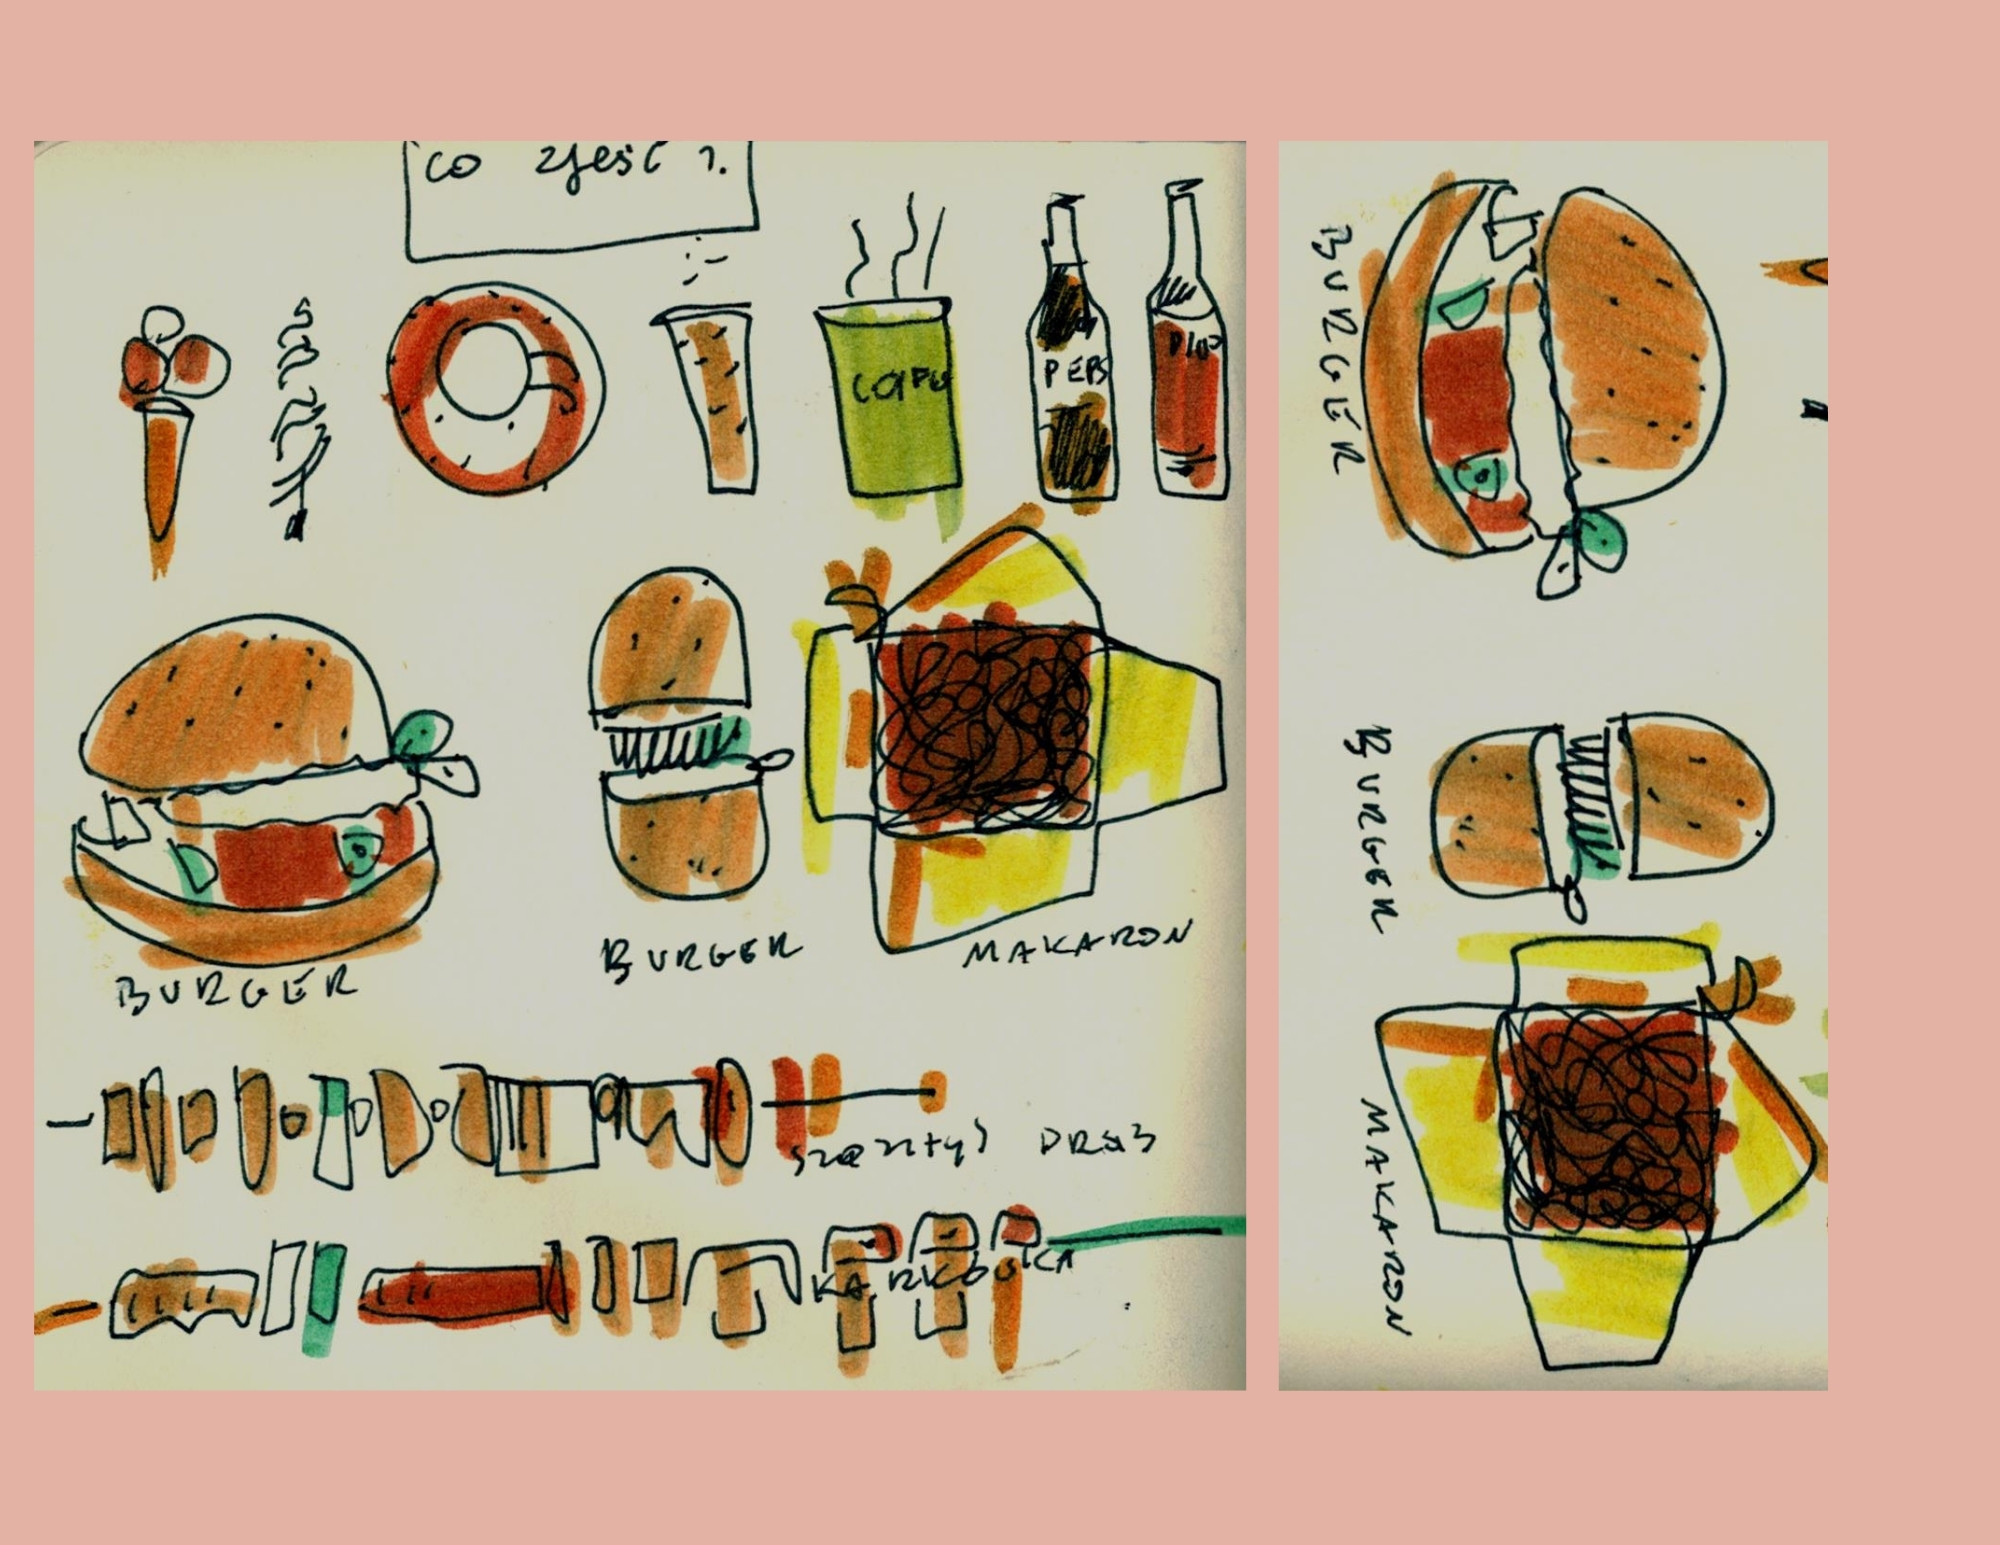 co zjesć ?.
CAFE
PEPS
PIWO
BURGER
BURGER
MAKARON
DRÓB
KARKÓWKA
BURGER
BURGER
MAKARON